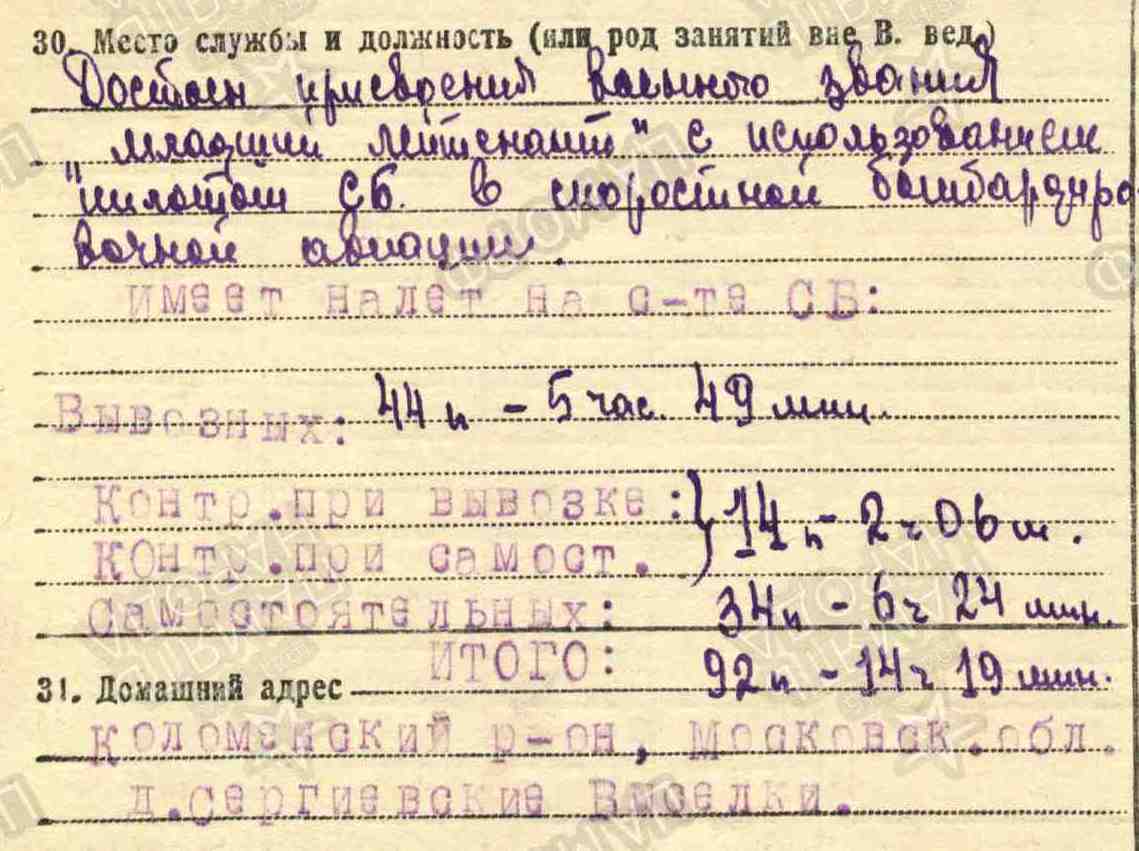 30. Место службы и должность (или род занятий вне В. вед.)
Достоин присвоения военного звания
младший лейтенант" с использованием
"пилотом СБ. в скоростной бомбардиро
вочной авиации.
имеет налет на с-те СБ:
Вывозных: 44 п - 5 час. 49 мин.
Контр.при вывозке :} 14 п - 2 ч 06 м.
КОнтр.при самост.
самостоятельных: 34 п - 6 ч 24 мин.
ИТОГО: 92 п - 14 ч 19 мин.
31. Домашний адрес
Коломенский р-он, Московск.обл.
д.Сергиевские Выселки.